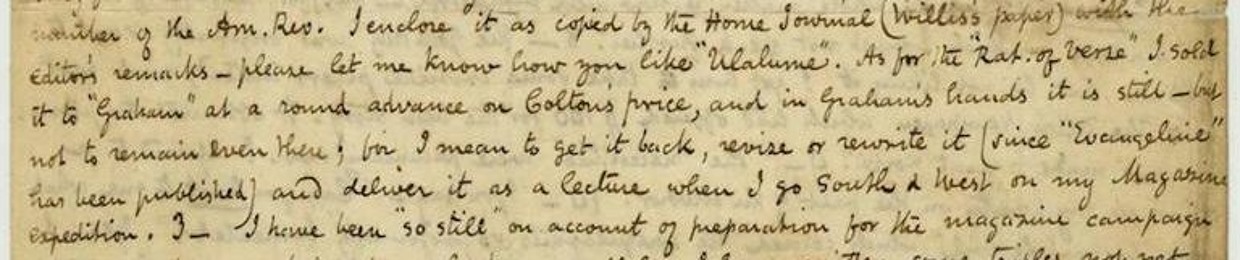 number of the Am. Rev. I enclose it as copied by the Home Journal (Willis's paper) with the
editor's remarks — please let me know how you like "Ulalume". As for the "Rat. of Verse" I sold
it to "Graham" at a round advance on Colton's price, and in Graham's hands it is still — but
not to remain even there; for I mean to get it back, revise or rewrite it (since "Evangeline"
has been published) and deliver it as a lecture when I go South & West on my Magazine
expedition. 3 — I have been "so still" on account of preparation for the magazine campaign